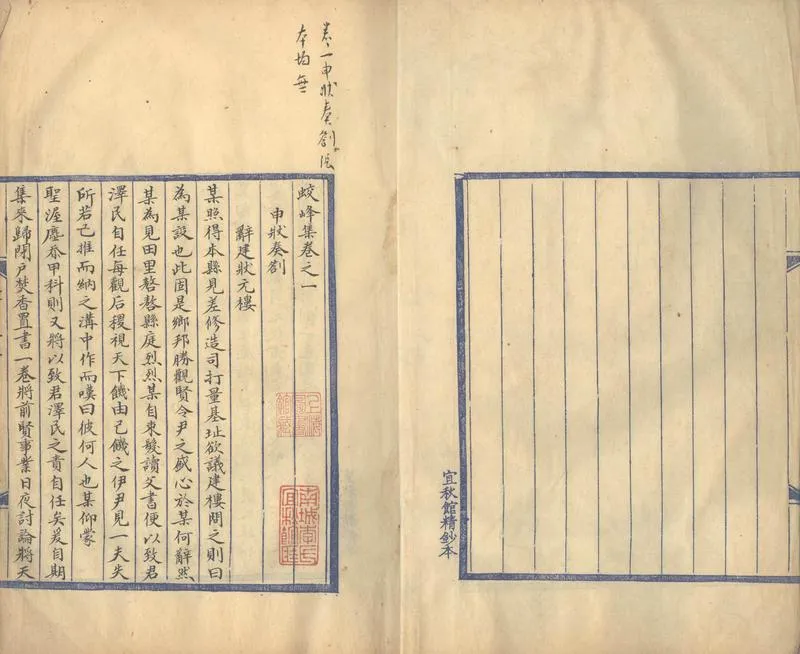 卷一申狀奏劄
本均無
蛟峰集卷之一
申狀奏劄
辭建狀元樓
某照得本縣見差修造司打量基址欲議建樓問之則曰
為某設也此固是鄉邦勝觀賢令尹之盛心於某何辭然
某為見田里嗸嗸縣庭烈烈某自束髮讀父書便以致君
澤民自任每觀后稷視天下饑由己饑之伊尹見一夫失
所若己推而納之溝中作而嘆曰彼何人也某仰蒙
聖渥塵忝甲科則又將以致君澤民之責自任矣爰自期
集來歸閉戶焚香置書一卷將前賢事業日夜討論將天
南城李氏
宜秋館
宜秋館精鈔本